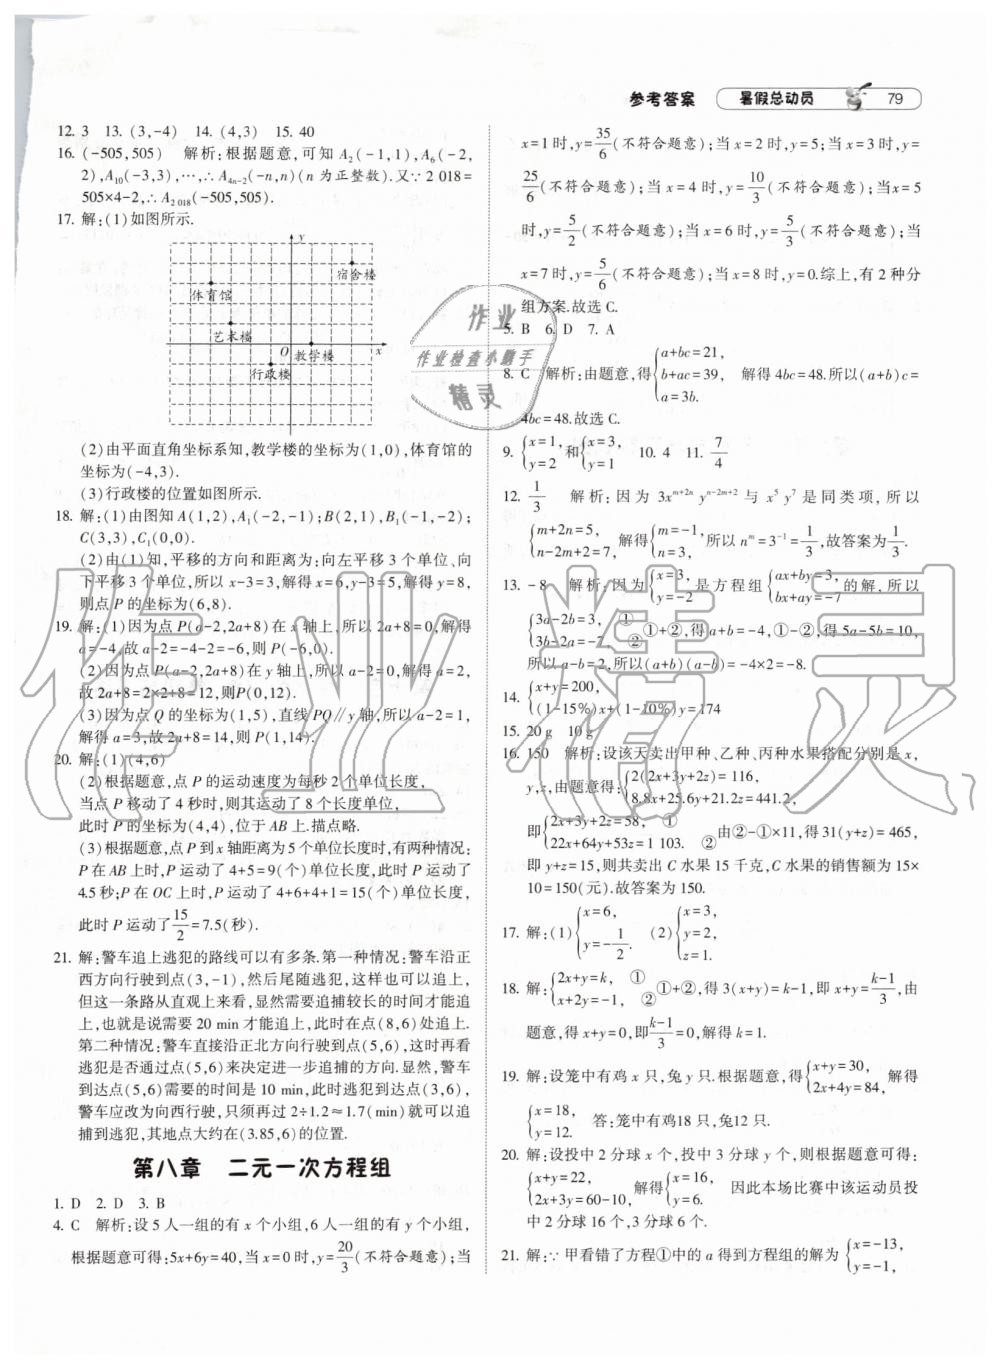 参考答案 暑假总动员 79
12. 3 13. (3,-4) 14. (4,3) 15. 40
16. (-505,505) 解析:根据题意,可知 A₂(-1,1),A₆(-2,
2),A₁₀(-3,3),…,∴A₄ₙ₋₂(-n,n)(n 为正整数).又∵2 018=
505×4-2,∴A₂ ₀₁₈(-505,505).
17. 解:(1)如图所示.
y
宿舍楼
体育馆
艺术楼
O 教学楼 x
行政楼
(2)由平面直角坐标系知,教学楼的坐标为(1,0),体育馆的
坐标为(-4,3).
(3)行政楼的位置如图所示.
18. 解:(1)由图知 A(1,2),A₁(-2,-1);B(2,1),B₁(-1,-2);
C(3,3),C₁(0,0).
(2)由(1)知,平移的方向和距离为:向左平移 3 个单位、向
下平移 3 个单位,所以 x-3=3,解得 x=6,y-3=5,解得 y=8,
则点 P 的坐标为(6,8).
19. 解:(1)因为点 P(a-2,2a+8)在 x 轴上,所以 2a+8=0,解得
a=-4,故 a-2=-4-2=-6,则 P(-6,0).
(2)因为点 P(a-2,2a+8)在 y 轴上,所以 a-2=0,解得 a=2,
故 2a+8=2×2+8=12,则P(0,12).
(3)因为点 Q 的坐标为(1,5),直线 PQ∥y 轴,所以 a-2=1,
解得 a=3,故 2a+8=14,则 P(1,14).
20. 解:(1)(4,6)
(2)根据题意,点 P 的运动速度为每秒 2 个单位长度,
当点 P 移动了 4 秒时,则其运动了 8 个长度单位,
此时 P 的坐标为(4,4),位于 AB 上.描点略.
(3)根据题意,点 P 到 x 轴距离为 5 个单位长度时,有两种情况:
P 在 AB 上时,P 运动了 4+5=9(个)单位长度,此时 P 运动了
4.5秒;P 在 OC 上时,P 运动了 4+6+4+1=15(个)单位长度,
此时 P 运动了15/2=7.5(秒).
21. 解:警车追上逃犯的路线可以有多条.第一种情况:警车沿正
西方向行驶到点(3,-1),然后尾随逃犯,这样也可以追上,
但这一条路从直观上来看,显然需要追捕较长的时间才能追
上,也就是说需要 20 min 才能追上,此时在点(8,6)处追上.
第二种情况:警车直接沿正北方向行驶到点(5,6),这时再看
逃犯是否通过点(5,6)来决定进一步追捕的方向.显然,警车
到达点(5,6)需要的时间是 10 min,此时逃犯到达点(3,6),
警车应改为向西行驶,只须再过 2÷1.2≈1.7(min)就可以追
捕到逃犯,其地点大约在(3.85,6)的位置.
第八章 二元一次方程组
1. D 2. D 3. B
4. C 解析:设 5 人一组的有 x 个小组,6 人一组的有 y 个小组,
根据题意可得:5x+6y=40,当 x=0 时,y=20/3(不符合题意);当
x=1 时,y=35/6(不符合题意);当 x=2 时,y=5;当 x=3 时,y=
25/6(不符合题意);当 x=4 时,y=10/3(不符合题意);当x=5
时,y=5/2(不符合题意);当 x=6 时,y=5/3(不符合题意);当
x=7 时,y=5/6(不符合题意);当 x=8 时,y=0.综上,有 2 种分
组方案.故选 C.
5. B 6. D 7. A
8. C 解析:由题意,得{a+bc=21, b+ac=39, a=3b. 解得 4bc=48.所以(a+b)c=
4bc=48.故选 C.
9. {x=1, y=2 和{x=3, y=1 10. 4 11. 7/4
12. 1/3 解析:因为 3x^(m+2n) y^(n-2m+2) 与 x⁵ y⁷ 是同类项,所以
{m+2n=5, n-2m+2=7, 解得{m=-1, n=3, 所以 nᵐ=3⁻¹=1/3,故答案为1/3.
13. -8 解析:因为{x=3, y=-2 是方程组{ax+by=3, bx+ay=-7 的解,所以
{3a-2b=3, ① 3b-2a=-7, ② ①+②,得 a+b=-4,①-②,得 5a-5b=10,
所以 a-b=2,所以(a+b)(a-b)=-4×2=-8.
14. {x+y=200, (1-15%)x+(1-10%)y=174
15. 20 g 10 g
16. 150 解析:设该天卖出甲种、乙种、丙种水果搭配分别是 x,
y,z,由题意得:{2(2x+3y+2z)=116, 8.8x+25.6y+21.2z=441.2,
即{2x+3y+2z=58, ① 22x+64y+53z=1 103. ② 由②-①×11,得 31(y+z)=465,
即 y+z=15,则共卖出 C 水果 15 千克,C 水果的销售额为 15×
10=150(元).故答案为 150.
17. 解:(1){x=6, y=-1/2. (2){x=3, y=2, z=1.
18. 解:{2x+y=k, ① x+2y=-1, ② ①+②,得 3(x+y)=k-1,即 x+y=k-1/3,由
题意,得 x+y=0,即k-1/3=0,解得 k=1.
19. 解:设笼中有鸡 x 只,兔 y 只.根据题意,得{x+y=30, 2x+4y=84, 解得
{x=18, y=12. 答:笼中有鸡18 只,兔12 只.
20. 解:设投中 2 分球 x 个,投中 3 分球 y 个,则根据题意可得:
{x+y=22, 2x+3y=60-10, 解得{x=16, y=6. 因此本场比赛中该运动员投
中 2 分球 16 个,3 分球 6 个.
21. 解:∵甲看错了方程①中的 a 得到方程组的解为 {x=-13, y=-1,
作业
作业检查小助手
精灵
作业精灵